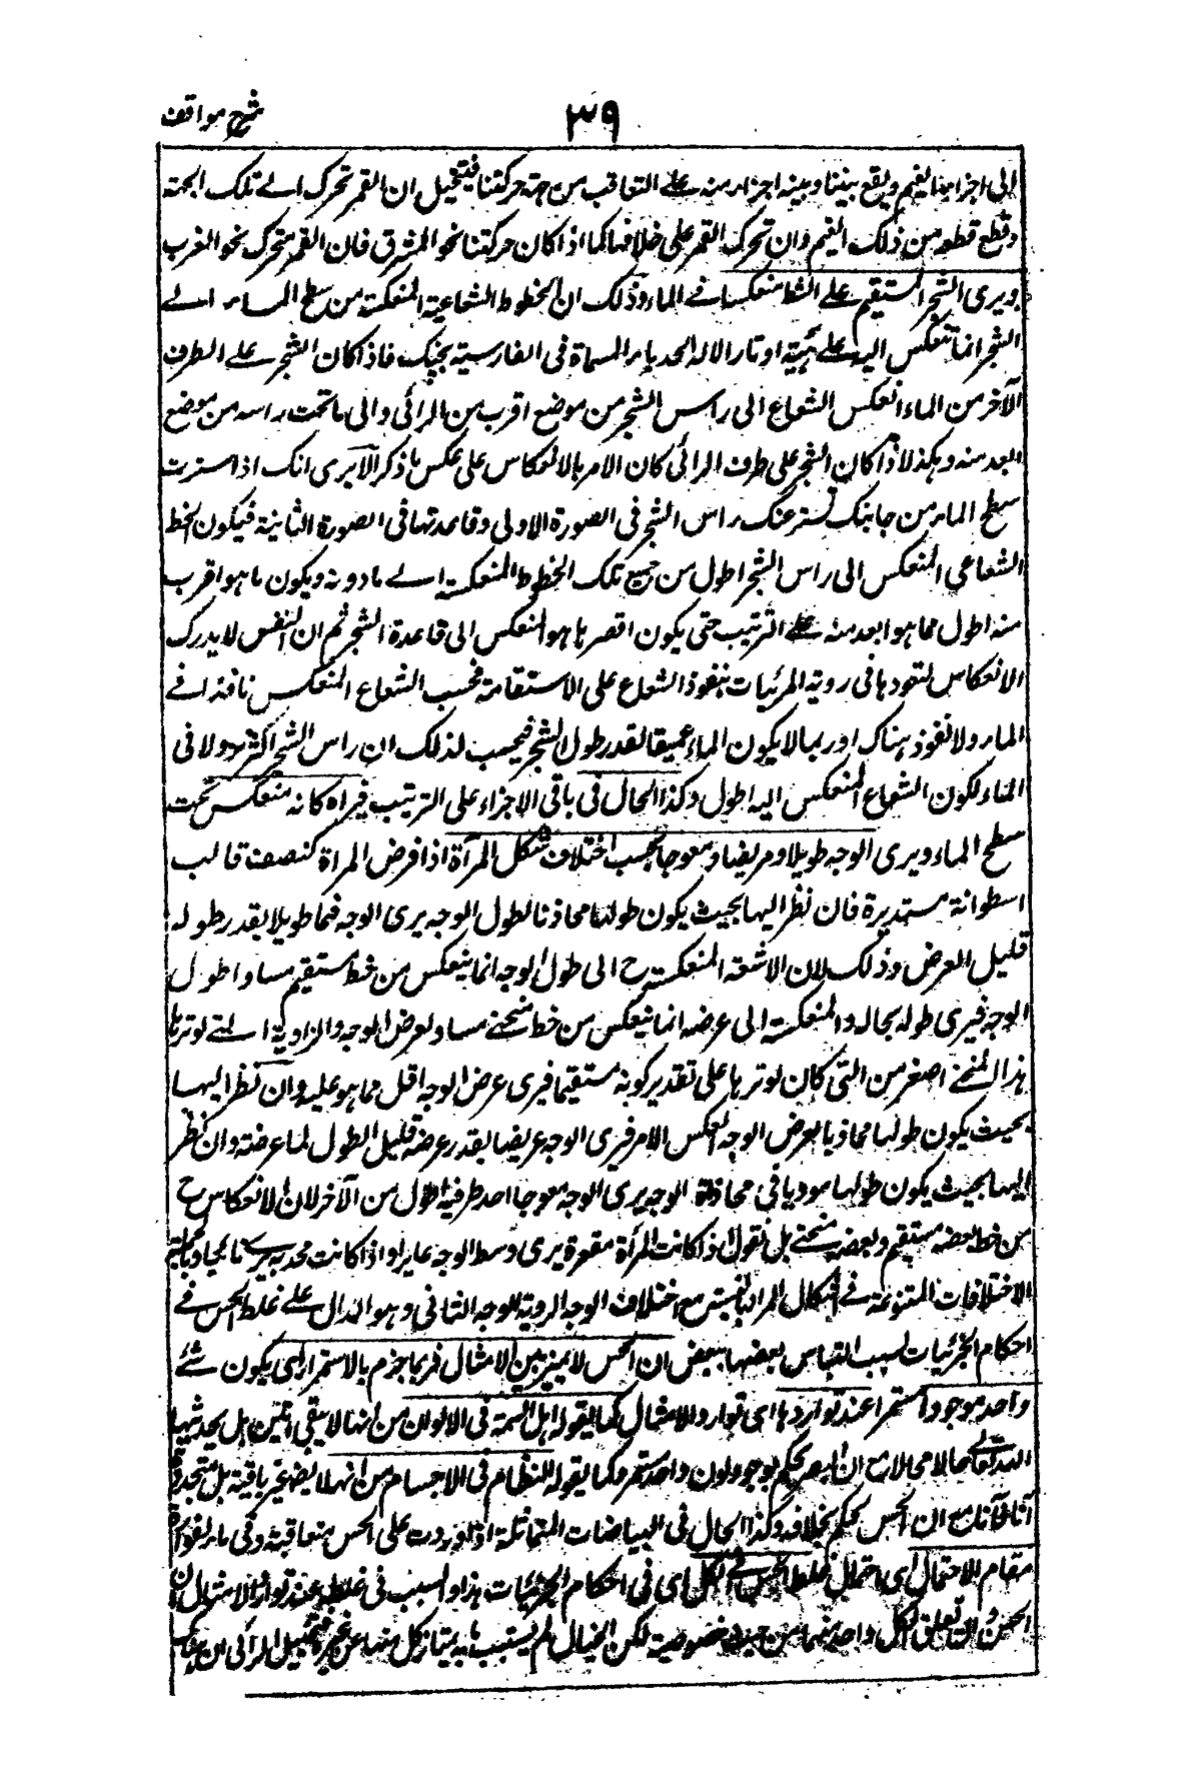 شرح مواقف
٣٩
الى اجزاء هذا الغيم ويقع بيننا وبينه اجزاء منه على التعاقب من جهة حركتنا فيتخيل ان القمر تحرك الى تلك الجهة
وقطع قطعه من ذلك الغيم وان تحرك القمر على خلافها كما اذا كان حركتنا نحو المشرق فان القمر متحرك نحو المغرب
ويرى الشجر المستقيم على الشط منعكسا فى الماء وذلك ان الخطوط الشعاعية المنعكسة من سطح الماء الى
الشجر انما تنعكس اليه على هيئة اوتار الالة الحدباء المسماة فى الفارسية بچنك فاذا كان الشجر على الطرف
الآخر من الماء انعكس الشعاع الى راس الشجر من موضع اقرب من الرائى والى ما تحت راسه من موضع
ابعد منه وهكذا واذا كان الشجر على طرف الرائى كان الامر بالانعكاس على عكس ما ذكر الا يرى انك اذا سترت
سطح الماء من جانبك تستر عنك راس الشجر فى الصورة الاولى وقاعدتها فى الصورة الثانية فيكون الخط
الشعاعى المنعكس الى راس الشجر اطول من جميع تلك الخطوط المنعكسة الى ما دونه ويكون ما هو اقرب
منه اطول مما هو ابعد منه على الترتيب حتى يكون اقصرها هو المنعكس الى قاعدة الشجر ثم ان النفس لا يدرك
الانعكاس لتعودها فى روية المرئيات بنفوذ الشعاع على الاستقامة فحسب الشعاع المنعكس نافذا فى
الماء ولا نفوذ هناك اذ ربما لا يكون الماء عميقا بقدر طول الشجر فيحسب لذلك ان راس الشجر اكثر نزولا فى
الماء لكون الشعاع المنعكس اليه اطول وكذا الحال فى باقى الاجزاء على الترتيب فيراه كانه منعكس تحت
سطح الماء ويرى الوجه طويلا وعريضا ومعوجا بحسب اختلاف شكل المرآة اذا فرض المراة كنصف قالب
اسطوانة مستديرة فان نظر اليها بحيث يكون طولها محاذيا لطول الوجه يرى الوجه فيها طويلا بقدر طوله
قليل العرض وذلك لان الاشعة المنعكسة ح الى طول الوجه انما ينعكس من خط مستقيم مساو لطول
الوجه فيرى طوله بحاله والمنعكسة الى عرضه انما ينعكس من خط منحنى مساو لعرض الوجه والزاوية التى يوترها
هذا المنحنى اصغر من التى كان يوترها على تقدير كونه مستقيما فيرى عرض الوجه اقل مما هو عليه وان نظر اليها
بحيث يكون طولها محاذيا لعرض الوجه انعكس الامر فيرى الوجه عريضا بقدر عرضه قليل الطول لما عرفته وان نظر
اليها بحيث يكون طولها موربا فى محاذاة الوجه يرى الوجه معوجا احد طرفيه اطول من الآخر لان الانعكاس ح
من خط بعضه مستقيم وبعضه منحنى بل نقول اذا كانت المرأة مقعرة يرى وسط الوجه غايرا واذا كانت محدبة يرى ناتيا وبالجملة
الاختلافات المتنوعة فى اشكال المرايا يستتبع اختلاف الوجه الروية الوجه الثانى وهو الدال على غلط الحس فى
احكام الجزئيات بسبب التباس بعضها ببعض ان الحس لا يميز بين الامثال فربما جزم بالاستمرار اى يكون شئ
واحد موجودا مستمرا عند تواردها اى توارد الامثال كما يقوله اهل السنة فى الالوان من انها لا يبقى انين بل يحدثها
الله تعالى حالا فحالا مع ان البصر يحكم بوجود لون واحد مستمر وكما يقوله النظام فى الاجسام من انها ايضا غير باقية بل متجددة
آنا فآنا مع ان الحس يحكم بخلافه وكذا الحال فى البياضات المتماثلة اذا وردت على الحس متعاقبة
مقام الاحتمال اى احتمال غلط الحس فى الكل اى فى احكام الجزئيات هذا والسبب فى غلطه عند توارد الامثال ان
الحس وان تعلق بكل واحد منها من حيث خصوصية لكن الخيال لم يستثبت ما به يمتاز كل منها عن غيره فيخيل الرائى ان